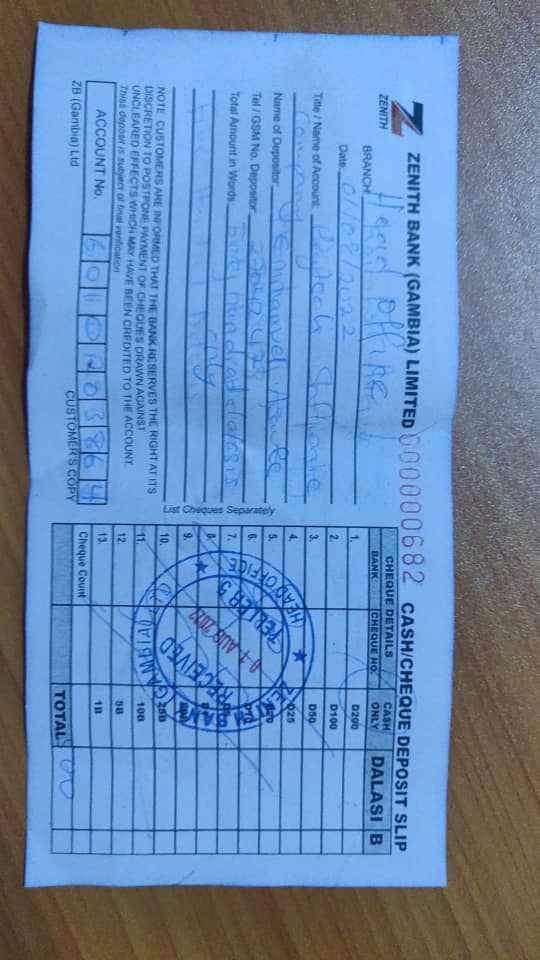 ZENITH
ZENITH BANK (GAMBIA) LIMITED 000000682 CASH/CHEQUE DEPOSIT SLIP
BRANCH: Head Office
Date 01/08/2022
Title / Name of Account:
Company
Name of Depositor Emmanuel
Tel / GSM No. Depositor
Total Amount in Words: hundred dalasis
only
NOTE CUSTOMERS ARE INFORMED THAT THE BANK RESERVES THE RIGHT AT ITS
DISCRETION TO POSTPONE PAYMENT OF CHEQUES DRAWN AGAINST
UNCLEARED EFFECTS WHICH MAY HAVE BEEN CREDITED TO THE ACCOUNT.
This deposit is subject of final verification
ACCOUNT No. 6010203864
ZB (Gambia) Ltd CUSTOMER'S COPY
List Cheques Separately
CHEQUE DETAILS CASH ONLY DALASI B
BANK CHEQUE NO.
1. D200
2. D100
3. D50
4. D25
5. D20
6. D10
7.
8.
9.
10. 25B
11. 10B
12. 5B
13. 1B
Cheque Count TOTAL 500
HEAD OFFICE
TELLER 3
01 AUG 2022
RECEIVED